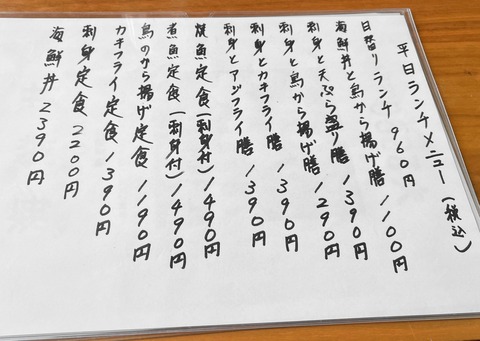 平日ランチメニュー(税込)
日替りランチ 960円
海鮮丼と鳥から揚げ膳 1100円
刺身と天ぷら盛り膳 1390円
刺身と鳥から揚げ膳 1290円
刺身とカキフライ膳 1390円
刺身とアジフライ膳 1390円
焼魚定食(刺身付) 1490円
煮魚定食(刺身付) 1490円
鳥のから揚げ定食 1190円
カキフライ定食 1390円
刺身定食 2200円
海鮮丼 2390円